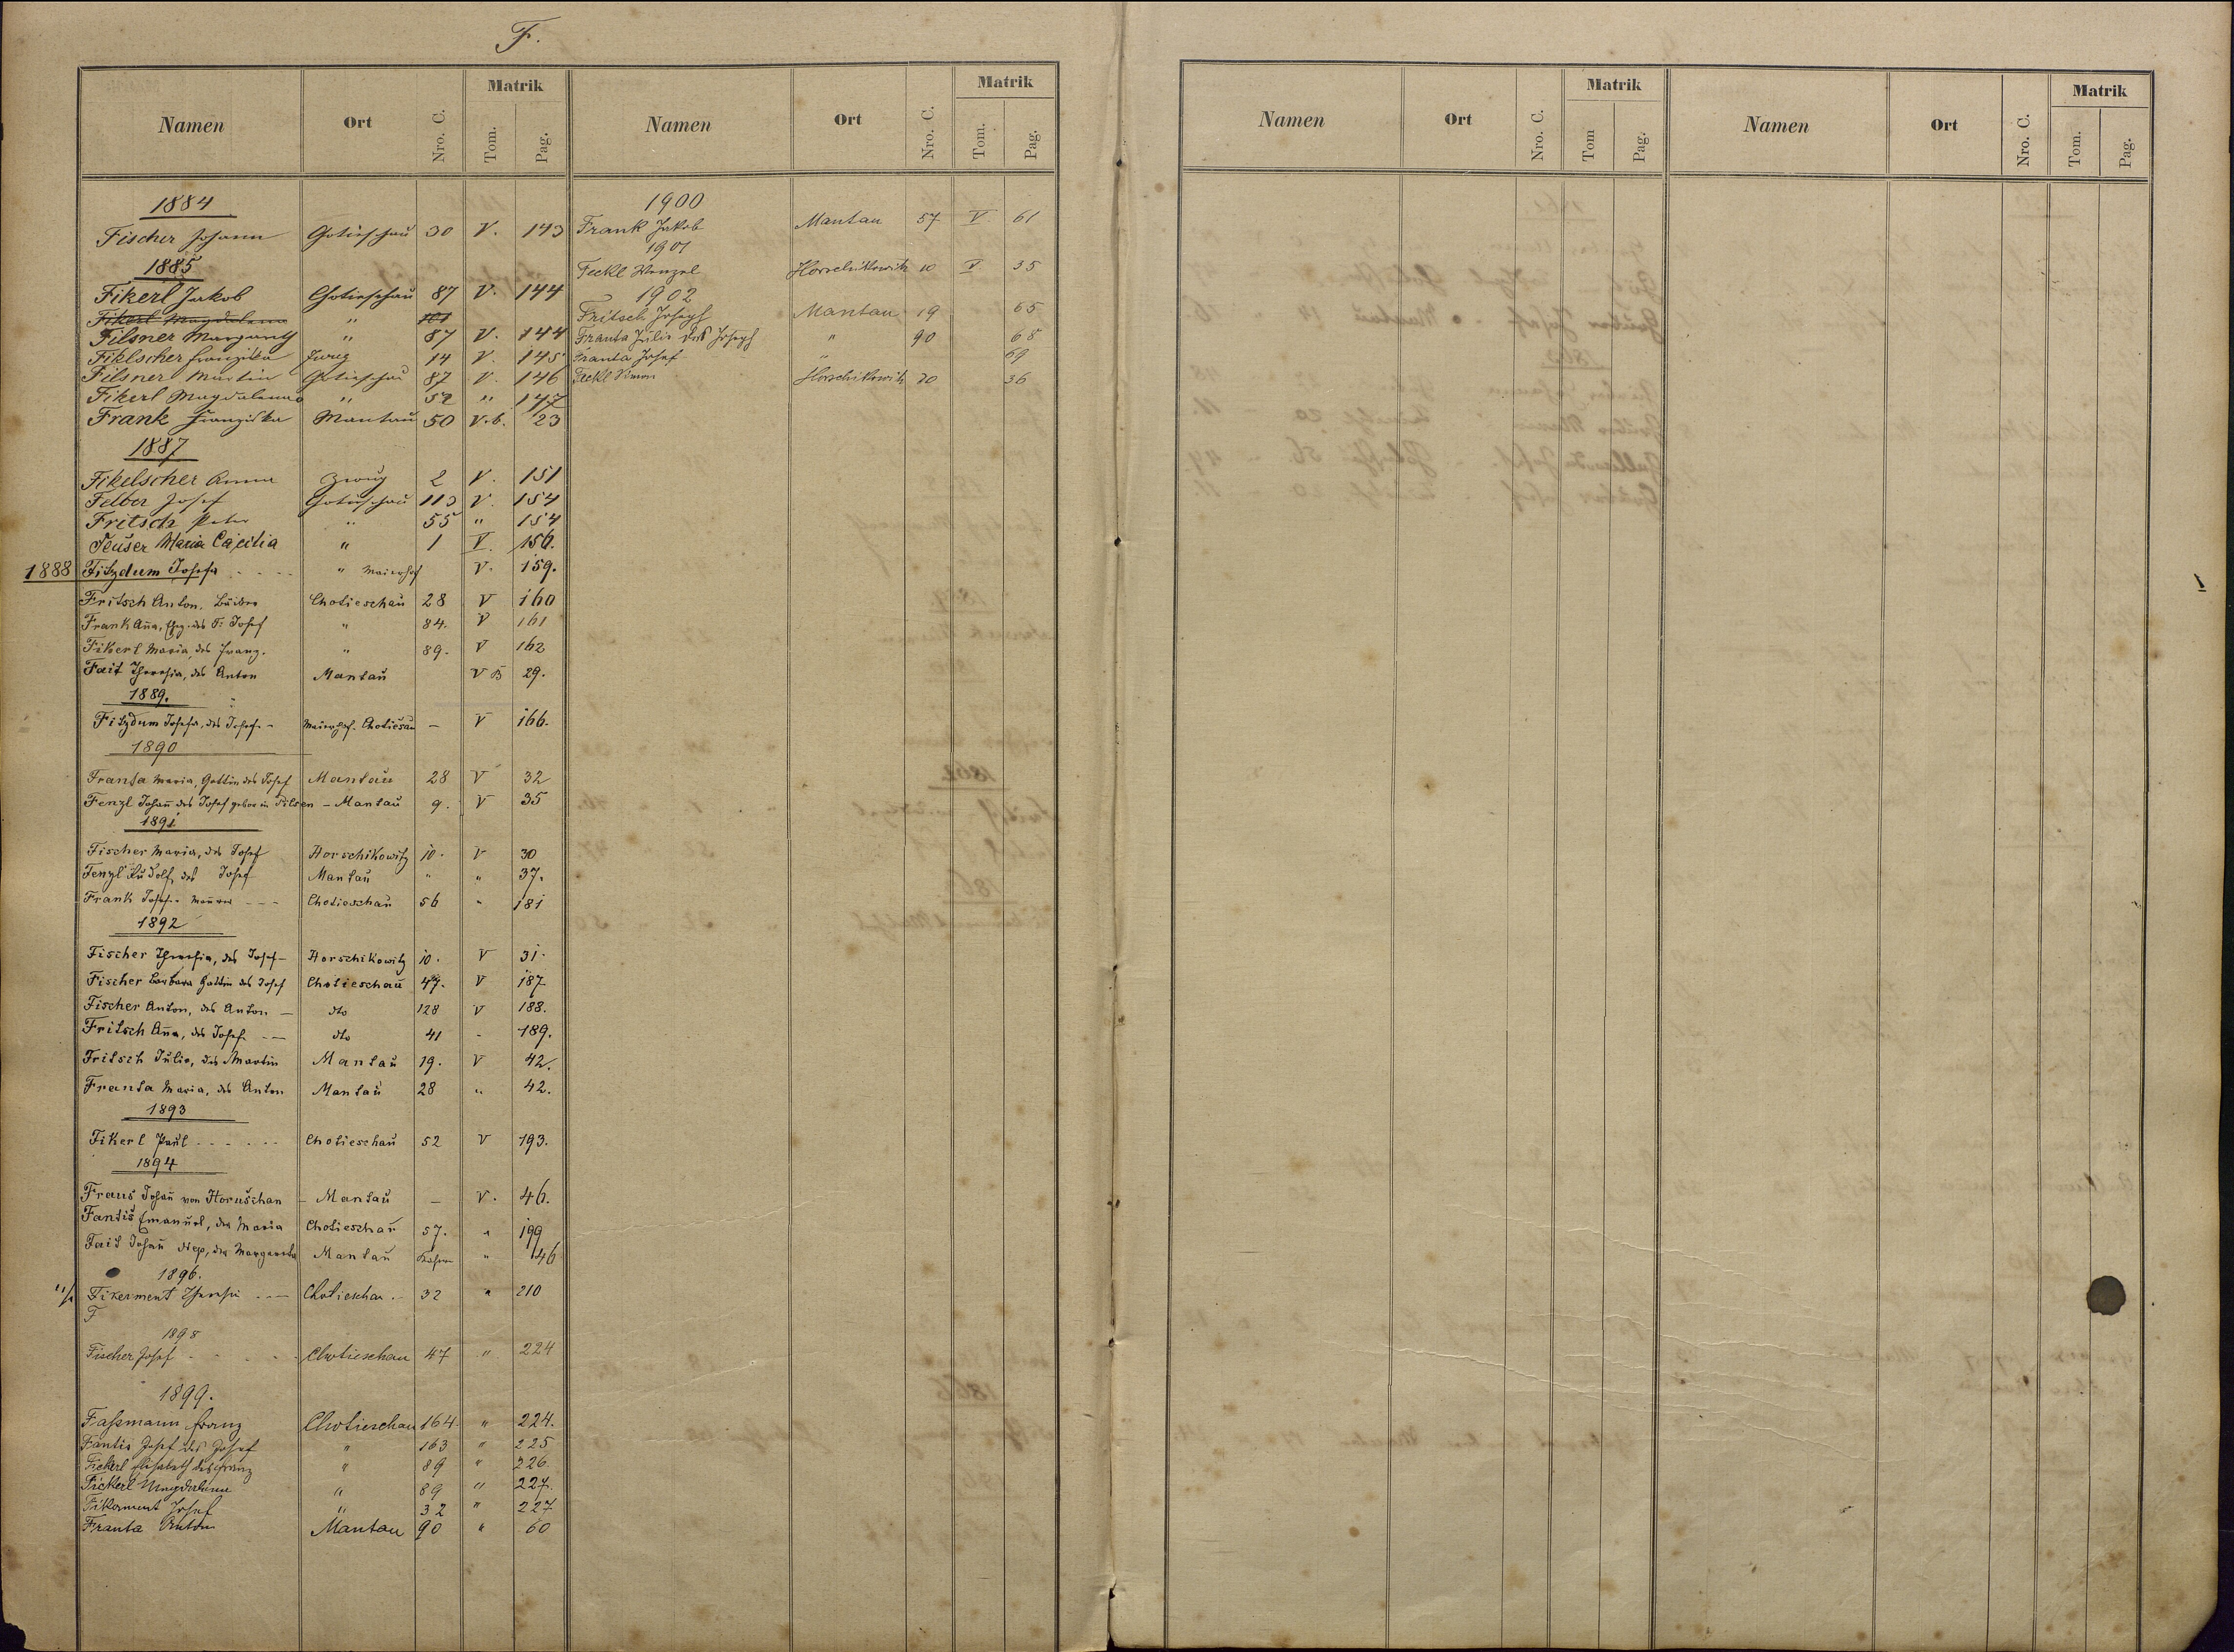 F.
Namen Ort Nro. C. Matrik Tom. Pag.
1884
Fischer Johann Gotieschau 30 V. 143
1885
Fikerl Jakob Chotieschau 87 V. 144
Fikerl Magdalena " 101
Filsner Margareth " 87 V. 144
Fiklscher Franziska Zwug 14 V. 145
Filsner Martin Gotieschau 87 V. 146
Fikerl Magdalena " 52 " 147
Frank Franziska Mantau 50 V.b. 23
1887
Fikelscher Anna Zwug 2 V. 151
Felber Josef Gotieschau 113 V. 154
Fritsch Peter " 55 " 154
Feuser Maria Cäcilia " 1 V. 156.
1888 Fitzdum Josefa " Maierhof V. 159.
Fritsch Anton, Chotieschau 28 V 160
Frank Ana, des F. Josef " 84. V 161
Fikerl Maria, des Franz. " 89. V 162
Fait Theresia, des Anton Mantau V B 29.
1889.
Fitzdum Josefa, des Josef - Maierhof. Chotiesau — V 166.
1890
Franta Maria, Gattin des Josef Mantau 28 V 32
Fenzl Johan des Josef gebor in Pilsen - Mantau 9. V 35
1891
Fischer Maria, des Josef Horschikowitz 10. V 30
Fenzl Rudolf, des Josef Mantau " " 37.
Frank Josef - Maurer - - - Chotieschau 56 " 181
1892
Fischer Theresia, des Josef - Horschikowitz 10. V 31.
Fischer Barbara Gattin des Josef Chotieschau 47. V 187
Fischer Anton, des Anton — dto 128 V 188.
Fritsch Ana, des Josef - — dto 41 - 189.
Fritsch Julie, des Martin Mantau 19. V 42.
Franta Maria, des Anton Mantau 28 " 42.
1893
Fikerl Paul - - - - - - Chotieschau 52 V 193.
1894
Fraus Johan von Horuschan - Mantau — V. 46.
Fantis Emanuel, der Maria Chotieschau 57. " 199
Fait Johan Nep, der Margaretha Mantau " 46
1896.
Fikerment Theresia - — Chotieschau. - 32 " 210
F
1898
Fischer Josef - - - - - Chotieschau 47 " 224
1899.
Faßmann Franz Chotieschau 164 " 224.
Fantis Josef des Josef " 163 " 225
Fickerl Elisabeth des Franz " 89 " 226.
Fickerl Magdalena " 89 " 227.
Fikerment Josef " 32 " 227
Franta Anton Mantau 90 " 60
Namen Ort Nro. C. Matrik Tom. Pag.
1900
Frank Jakob Mantau 57 V 61
1901
Feckl Wenzel Horschikowitz 10 V. 35
1902
Fritsch Joseph Mantau 19 65
Franta Julie des Joseph " 90 68
Franta Josef " 69
Feckl Simon Horschikowitz 20 36
Namen Ort Nro. C. Matrik Tom Pag.
Namen Ort Nro. C. Matrik Tom. Pag.